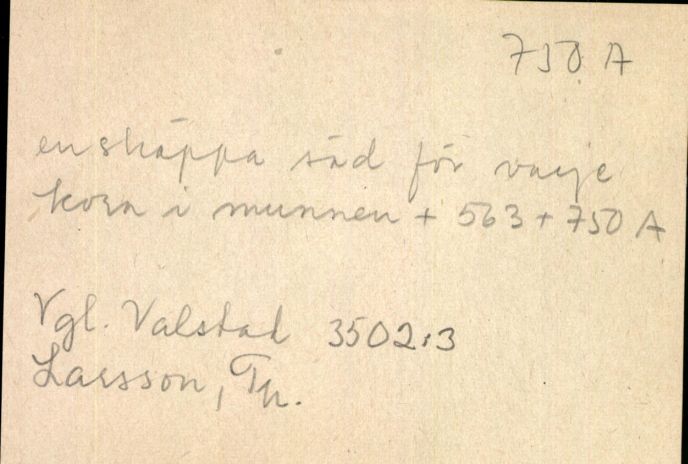 750 A
en skäppa säd för varje
korn i munnen + 563 + 750 A
Vgl. Valstad 3502:3
Larsson, Th.